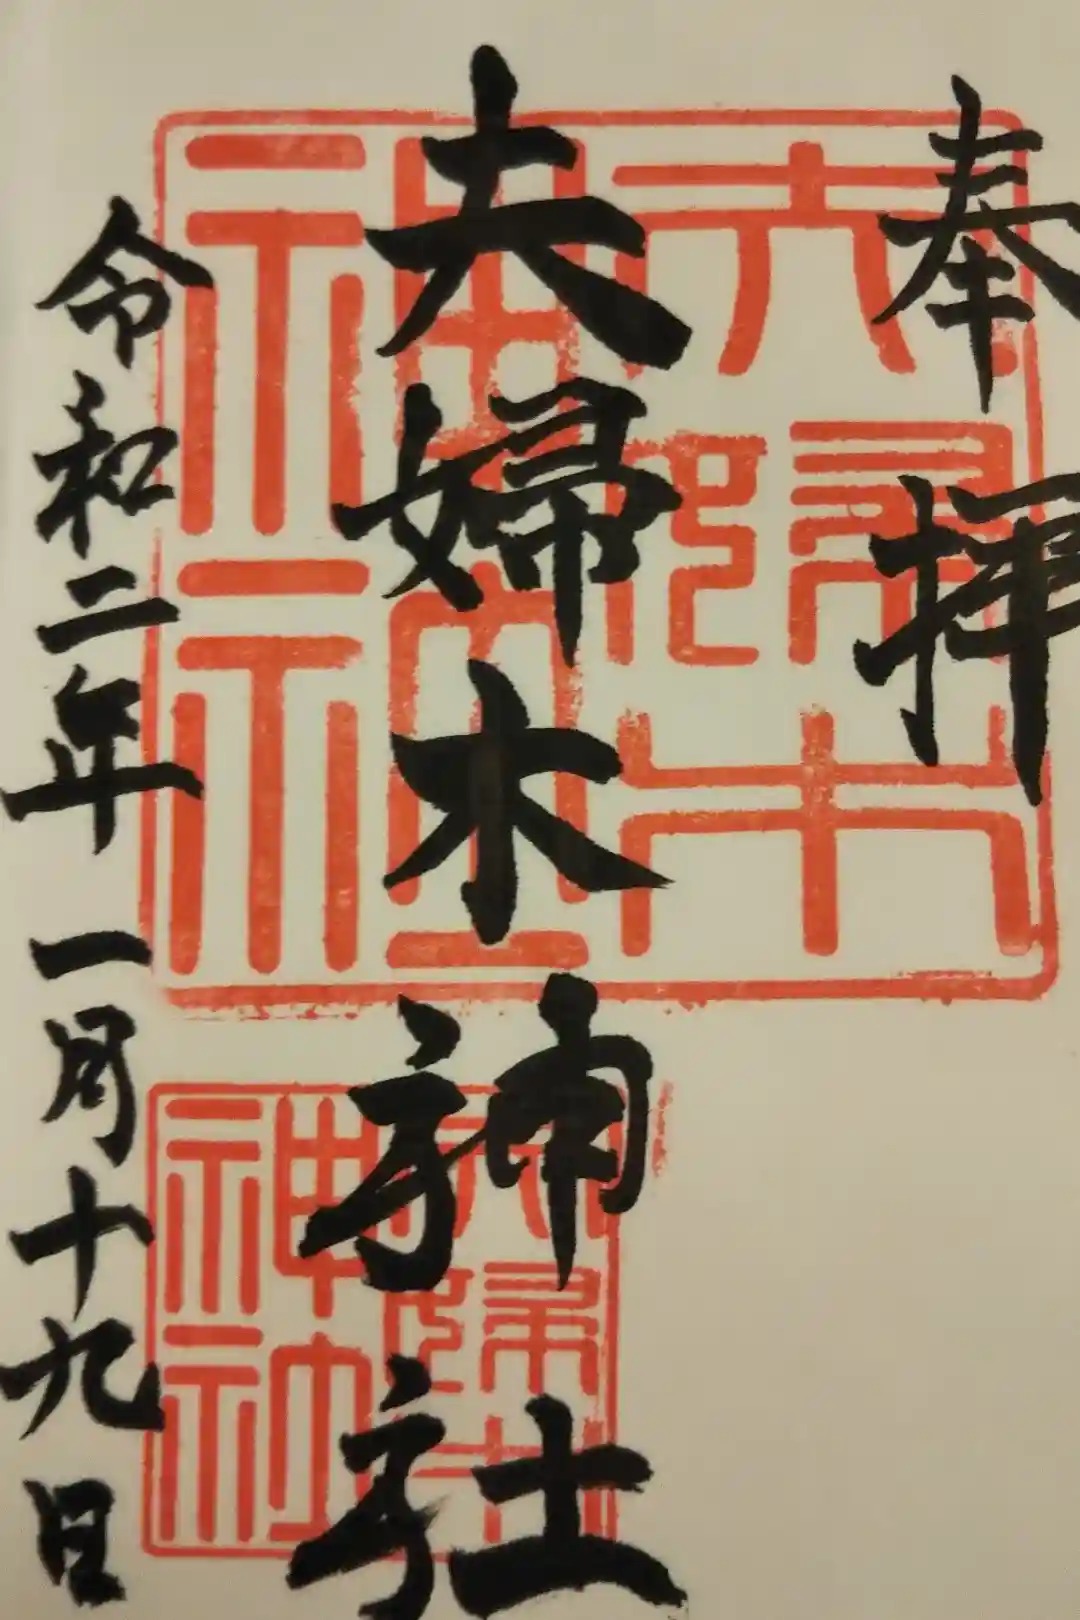 奉拝
夫婦木神社
令和二年一月十九日
夫婦木神社
夫婦木神社